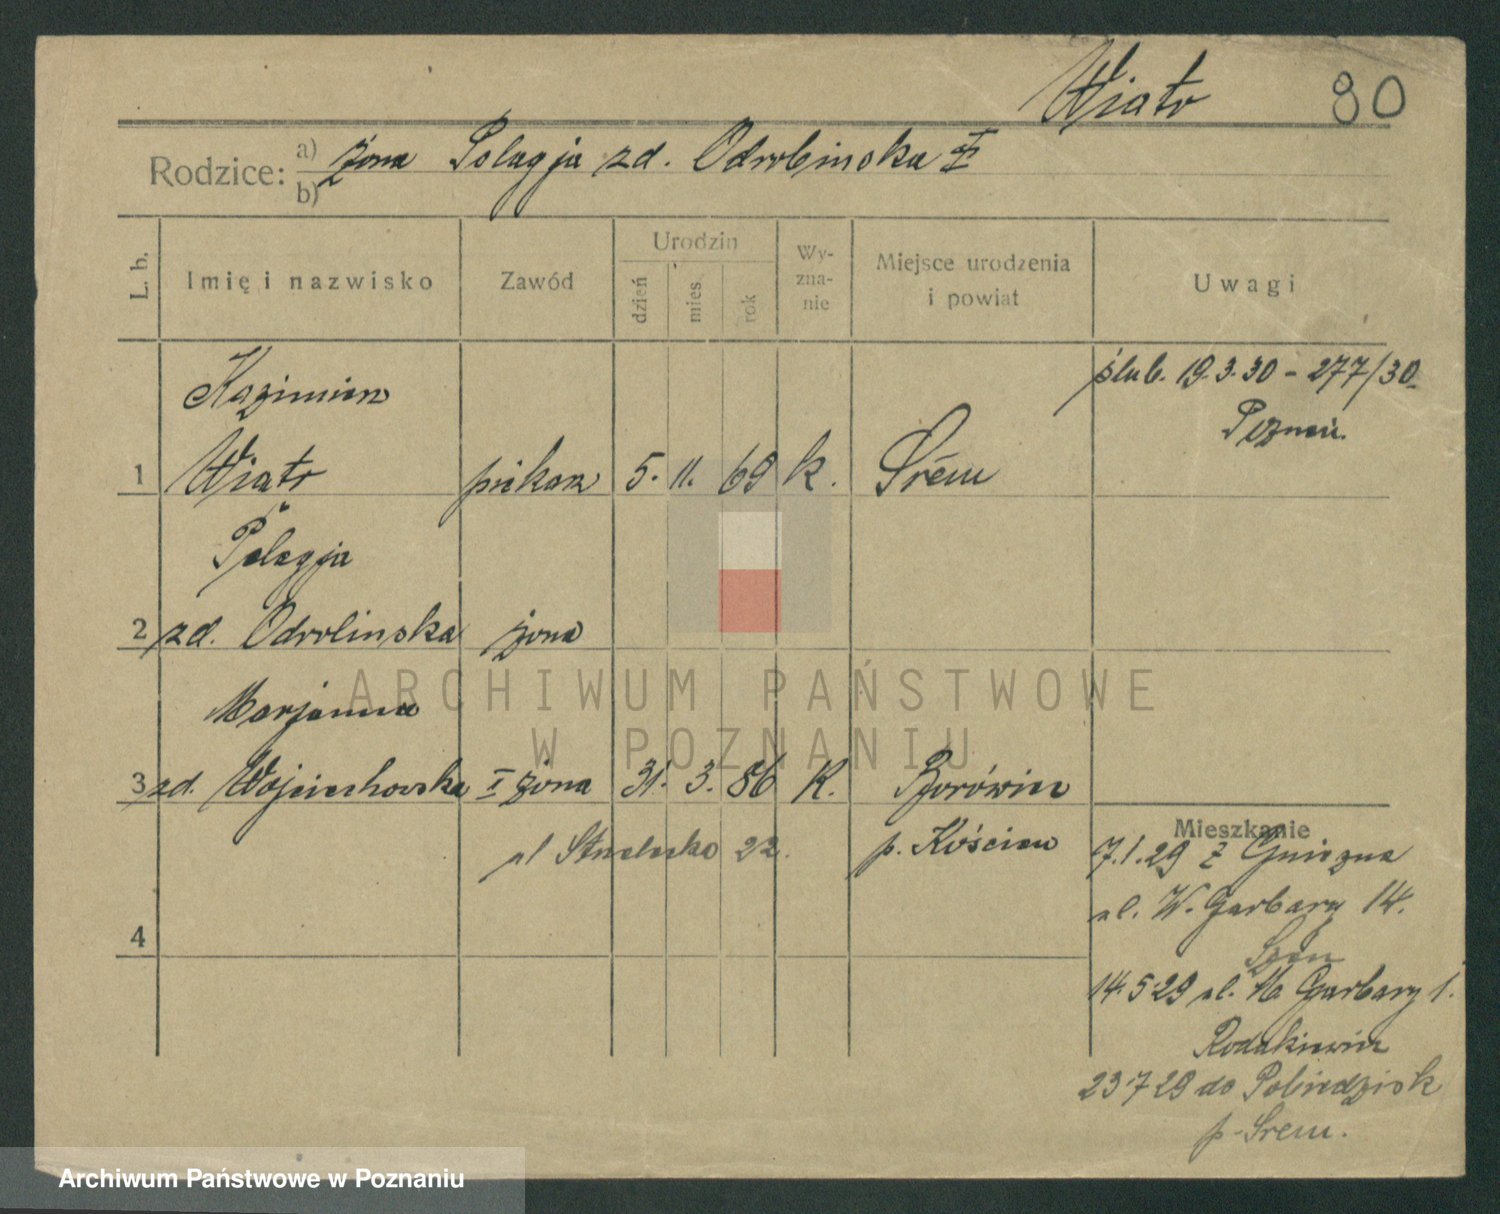 Wiatr 80
Rodzice: a) żona Pelagja zd. Odrobinska I
b)
L. b.
Imię i nazwisko
Zawód
Urodzin
dzień
mies.
rok
Wy-
zna-
nie
Miejsce urodzenia
i powiat
Uwagi
Kazimierz
ślub. 19.3.30 - 277/30
Poznań.
1 Wiatr piekarz 5. 11. 69 k. Śrem
Pelagja
2 zd. Odrobinska żona
Marjanna
3 zd. Wojciechowska I żona 31. 3. 86 K.
ul Strzelecka 22.
p. Kościan
Mieszkanie
7.1.29 z Gniezna
ul. W. Garbary 14.
14.5.29 ul. M Garbary 1.
Rodakiewicz
23.7.29 do Pobiedzisk
p. Srem.
4
ARCHIWUM PAŃSTWOWE
W POZNANIU
Archiwum Państwowe w Poznaniu